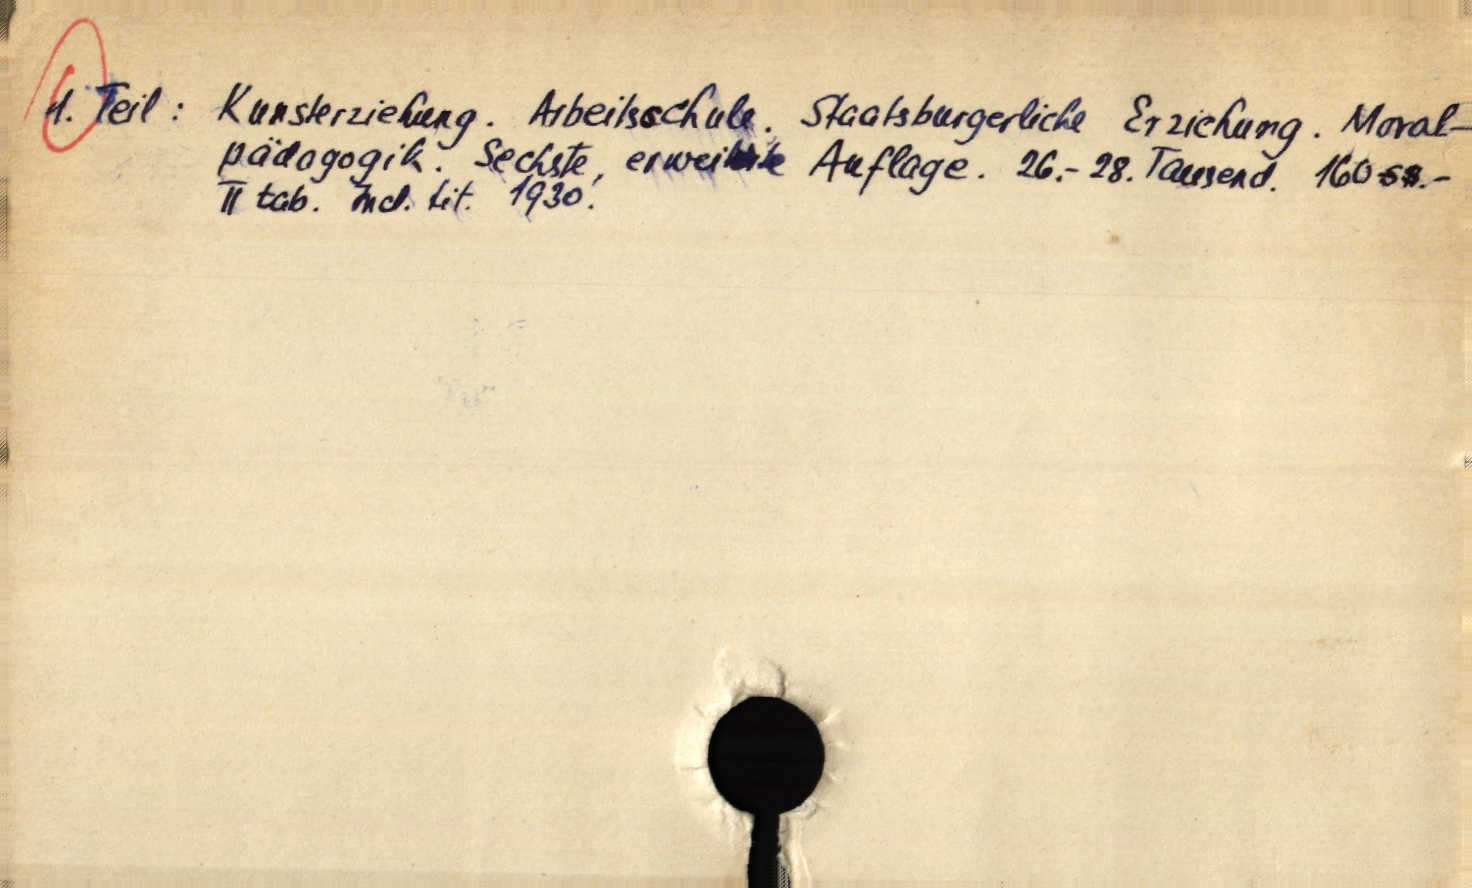 1. Teil: Kunsterziehung. Arbeitsschule. Staatsburgerliche Erziehung. Moral-
pädagogik. Sechste, erweiterte Auflage. 26.-28. Tausend. 160 ss.-
II tab. Ind. Lit. 1930.